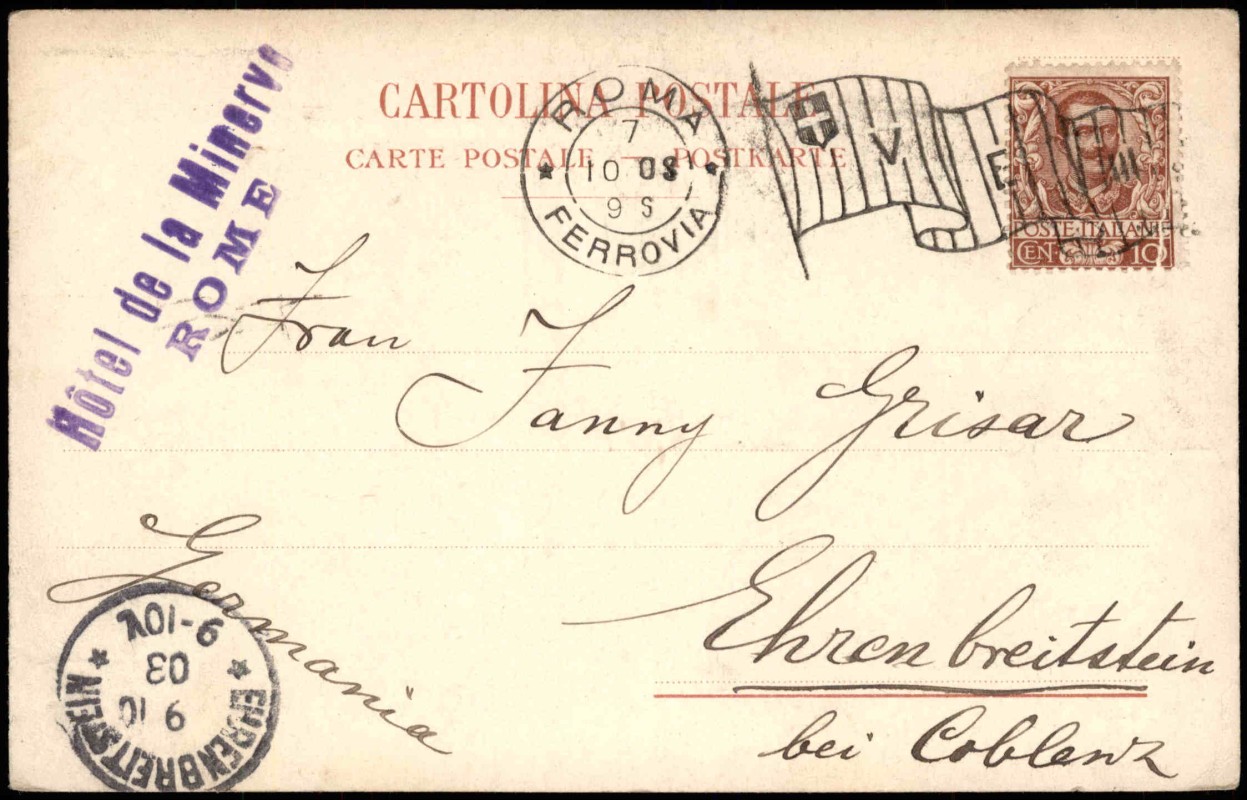 CARTOLINA POSTALE
CARTE POSTALE — POSTKARTE
Hôtel de la Minerve
ROME
ROMA
7
10 03
9 S
FERROVIA
V E III
POSTE·ITALIANE
CENT 10
Frau
Fanny Grisar
Germania
Ehrenbreitstein
bei Coblenz
EHRENBREITSTEIN
9 10
03
9-10V